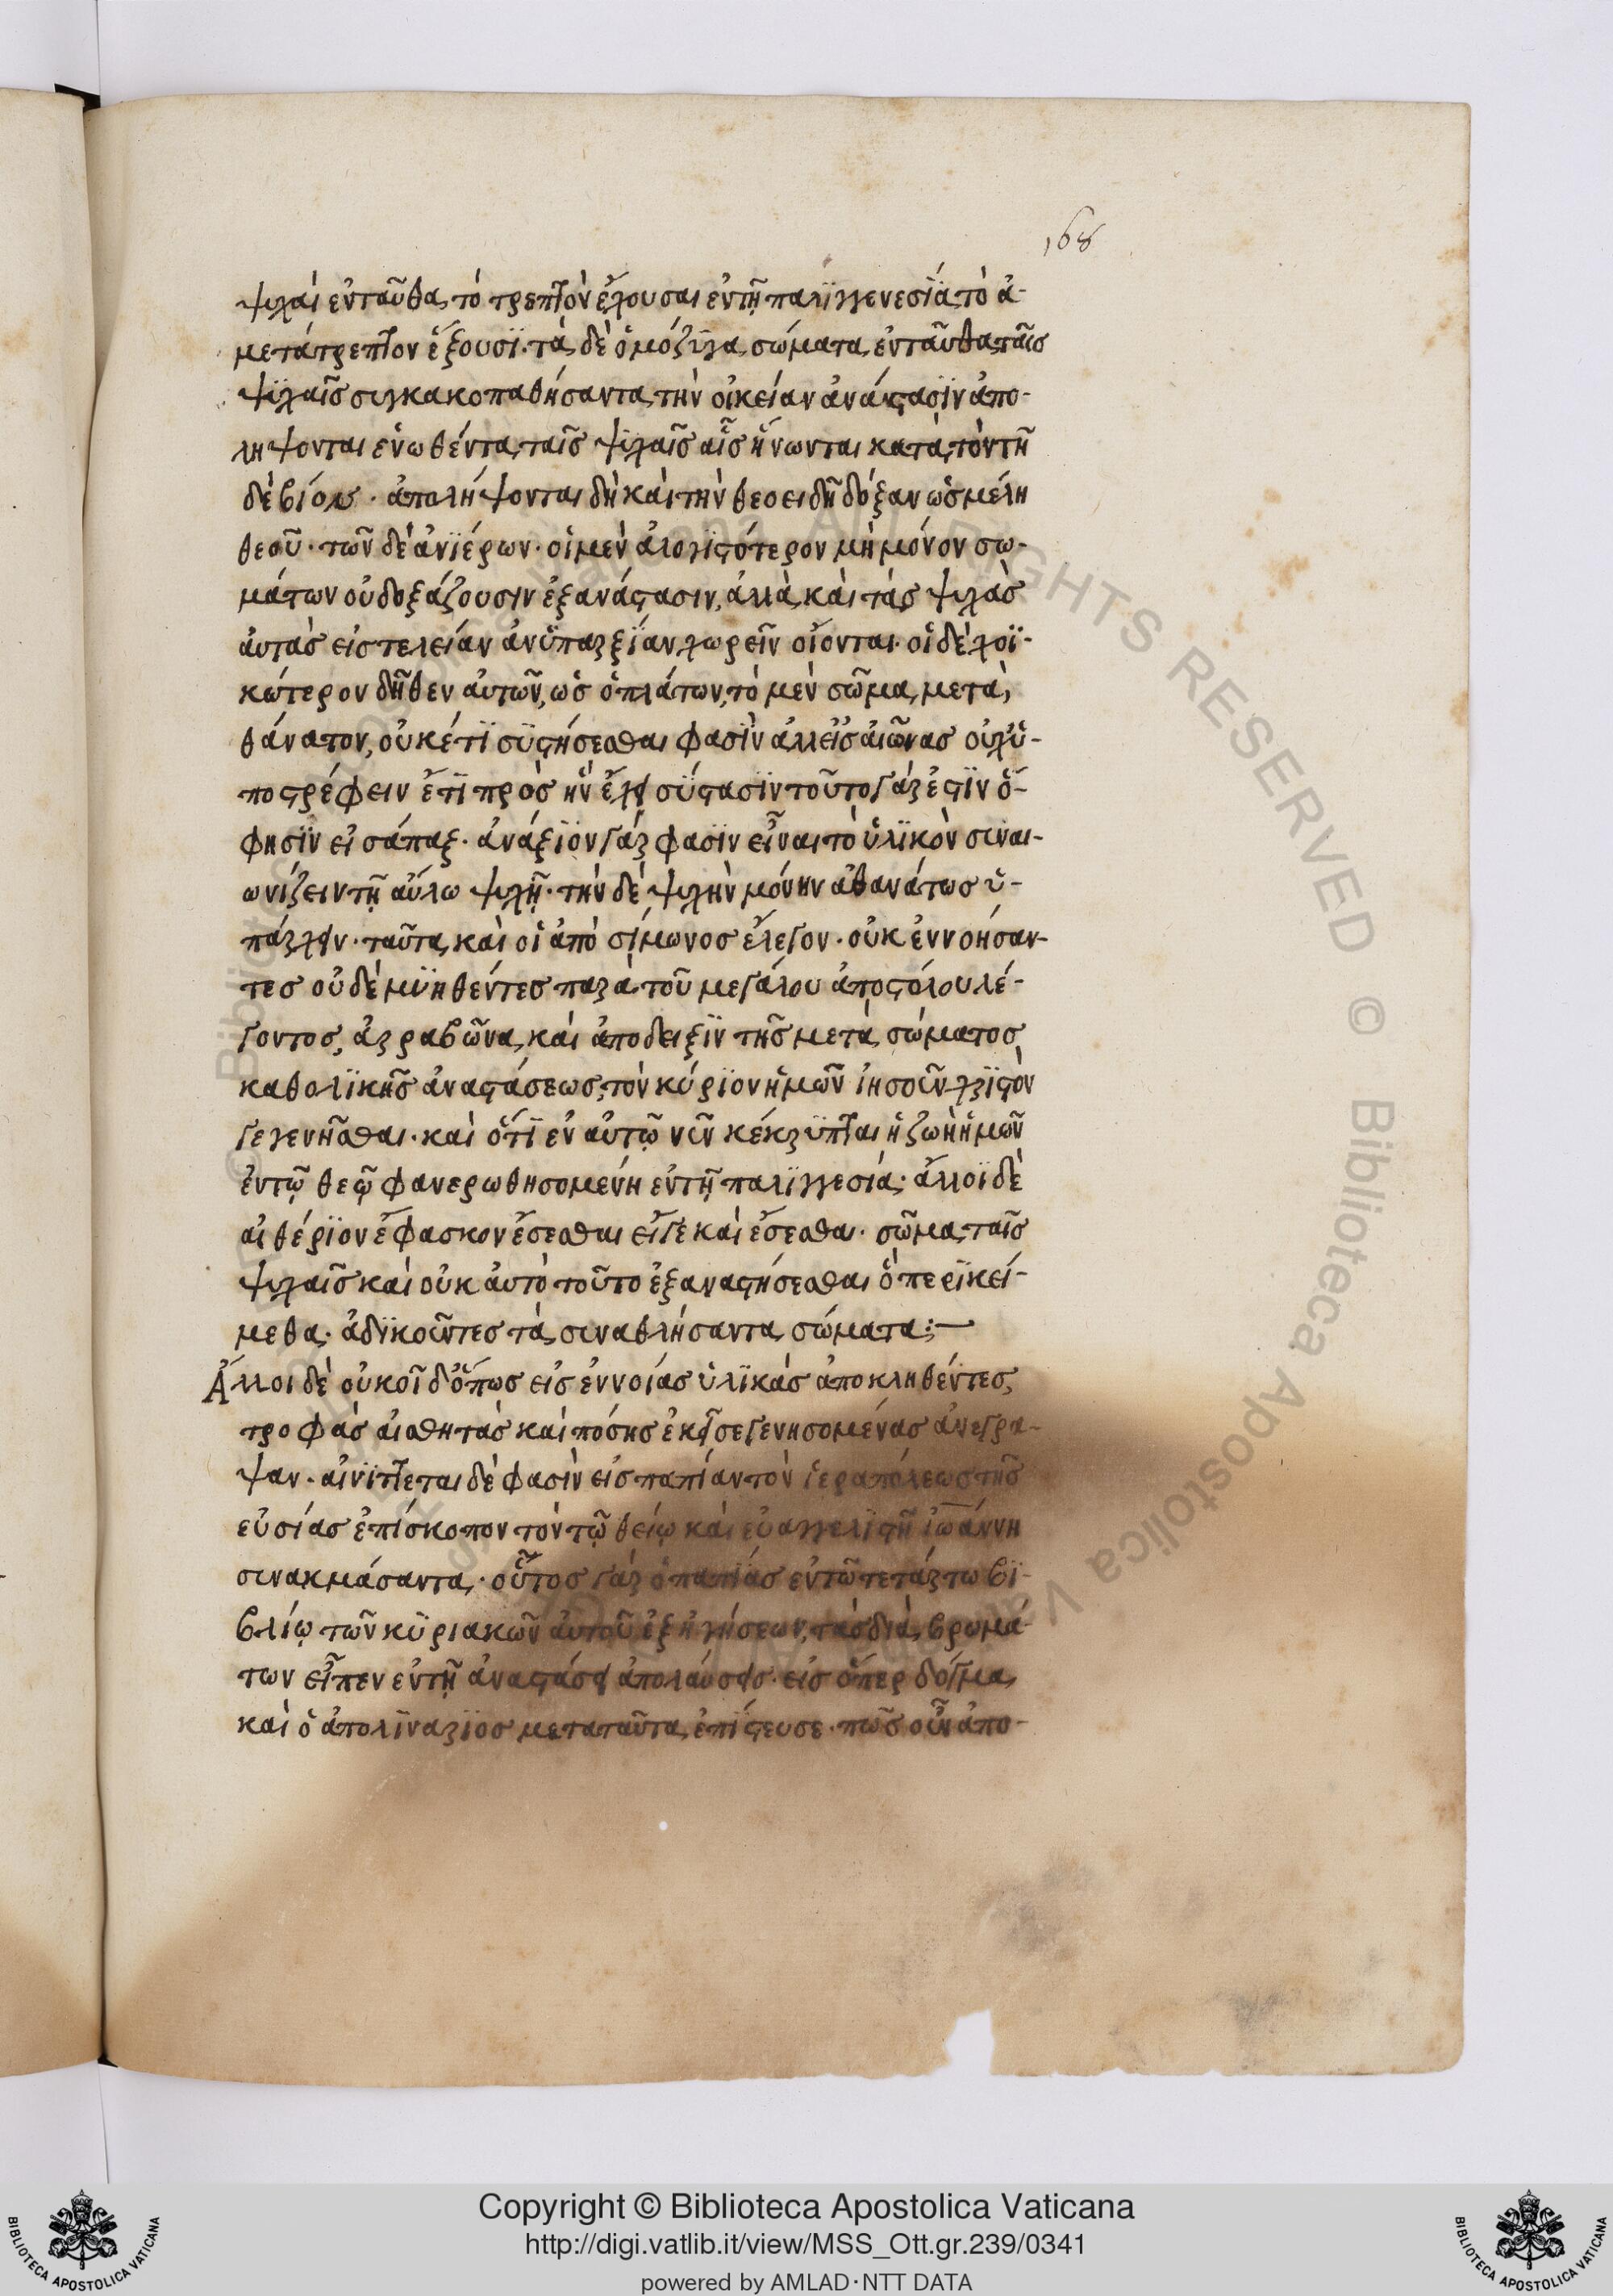 168
ψυχαὶ ἐνταῦθα, τὸ τρεπτὸν ἔχουσαι ἐν τῇ παλϊγγενεσΐα, τὸ ἀ-
μετάτρεπτον ἕξουσϊ· τὰ δὲ ὁμόζυγα σώματα ἐνταῦθα ταῖς
ψυχαῖς συγκακοπαθήσαντα, τὴν οἰκείαν ἀνάστασϊν ἀπο-
λήψονται ἑνωθέντα ταῖς ψυχαῖς αἷς ἥνωνται κατὰ τὸν τῇ
δὲ βίον· ἀπολήψονται δὴ καὶ τὴν θεοειδῆ δόξαν ὡς μέλη
θεοῦ· τῶν δὲ ἀνϊέρων· οἱ μὲν ἀλογϊστότερον μὴ μόνον σω-
μάτων οὐ δοξάζουσιν ἐξανάστασιν, ἀλλὰ καὶ τὰς ψυχὰς
αὐτὰς εἰς τελείαν ἀνϋπαρξΐαν χωρεῖν οἴονται· οἱ δὲ χοϊ-
κώτερον δῆθεν αὐτῶν, ὡς ὁ πλάτων, τὸ μὲν σῶμα, μετὰ
θάνατον, οὐκέτϊ συστήσεσθαι φασϊν ἀλλ' εἰς αἰῶνας οὐχ ὑ-
ποστρέφειν ἔτϊ πρὸς ἣν ἔχει σύστασϊν τοῦτο γάρ ἐστϊν ὅ-
φησϊν εἰσάπαξ· ἀνάξϊον γάρ φασϊν εἶναι τὸ ὑλϊκὸν συναι-
ωνίζειν τῇ ἀύλω ψυχῇ· τὴν δὲ ψυχὴν μόνην ἀθανάτως ὑ-
πάρχειν· ταῦτα καὶ οἱ ἀπὸ σίμωνος ἔλεγον· οὐκ ἐννοήσαν-
τες οὐδὲ μϋηθέντες παρὰ τοῦ μεγάλου ἀποστόλου λέ-
γοντος, ἀρραβῶνα, καὶ ἀπόδειξϊν τῆς μετὰ σώματος
καθολϊκῆς ἀναστάσεως, τὸν κύρϊον ἡμῶν ἰησοῦν χρϊστὸν
γεγενῆσθαι· καὶ ὅτϊ ἐν αὐτῷ νῦν κέκρυπται ἡ ζωὴ ἡμῶν
ἐν τῷ θεῷ φανερωθησομένη ἐν τῇ παλϊγγεσία· ἄλλοϊ δὲ
αἰθέρϊον ἔφασκον ἔσεσθαι εἴγε καὶ ἔσεσθαι· σῶμα ταῖς
ψυχαῖς καὶ οὐκ αὐτὸ τοῦτο ἐξαναστήσεσθαι ὃ περϊκεί-
μεθα· ἀδϊκοῦντες τὰ συναθλήσαντα σώματα:—
Ἄλλοι δὲ οὐκ οἶδ' ὅπως εἰς ἐννοίας ὑλϊκὰς ἀποκληθέντες,
τροφὰς αἰσθητὰς καὶ πόσης ἐκεῖσε γενησομένας ἀνέγρα-
ψαν· αἰνϊττεται δὲ φασὶν εἰς παπίαν τὸν ἱεραπόλεως τῆς
εὐσίας ἐπίσκοπον τὸν τῷ θείῳ καὶ εὐαγγελϊστῇ ἰωάννη
συνακμάσαντα· οὗτος γὰρ ὁ παπΐας ἐν τῶ τετάρτω βϊ-
βλίῳ τῶν κϋριακῶν αὐτοῦ ἐξηγήσεων, τὰς διὰ βρωμά-
των εἶπεν ἐν τῇ ἀναστάσει ἀπολαύσεις· εἰς ὅπερ δόγμα,
καὶ ὁ ἀπολϊναρϊος μετὰ ταῦτα ἐπΐστευσε· πῶς οὖν ἀπο-
Copyright © Biblioteca Apostolica Vaticana
http://digi.vatlib.it/view/MSS_Ott.gr.239/0341
powered by AMLAD·NTT DATA